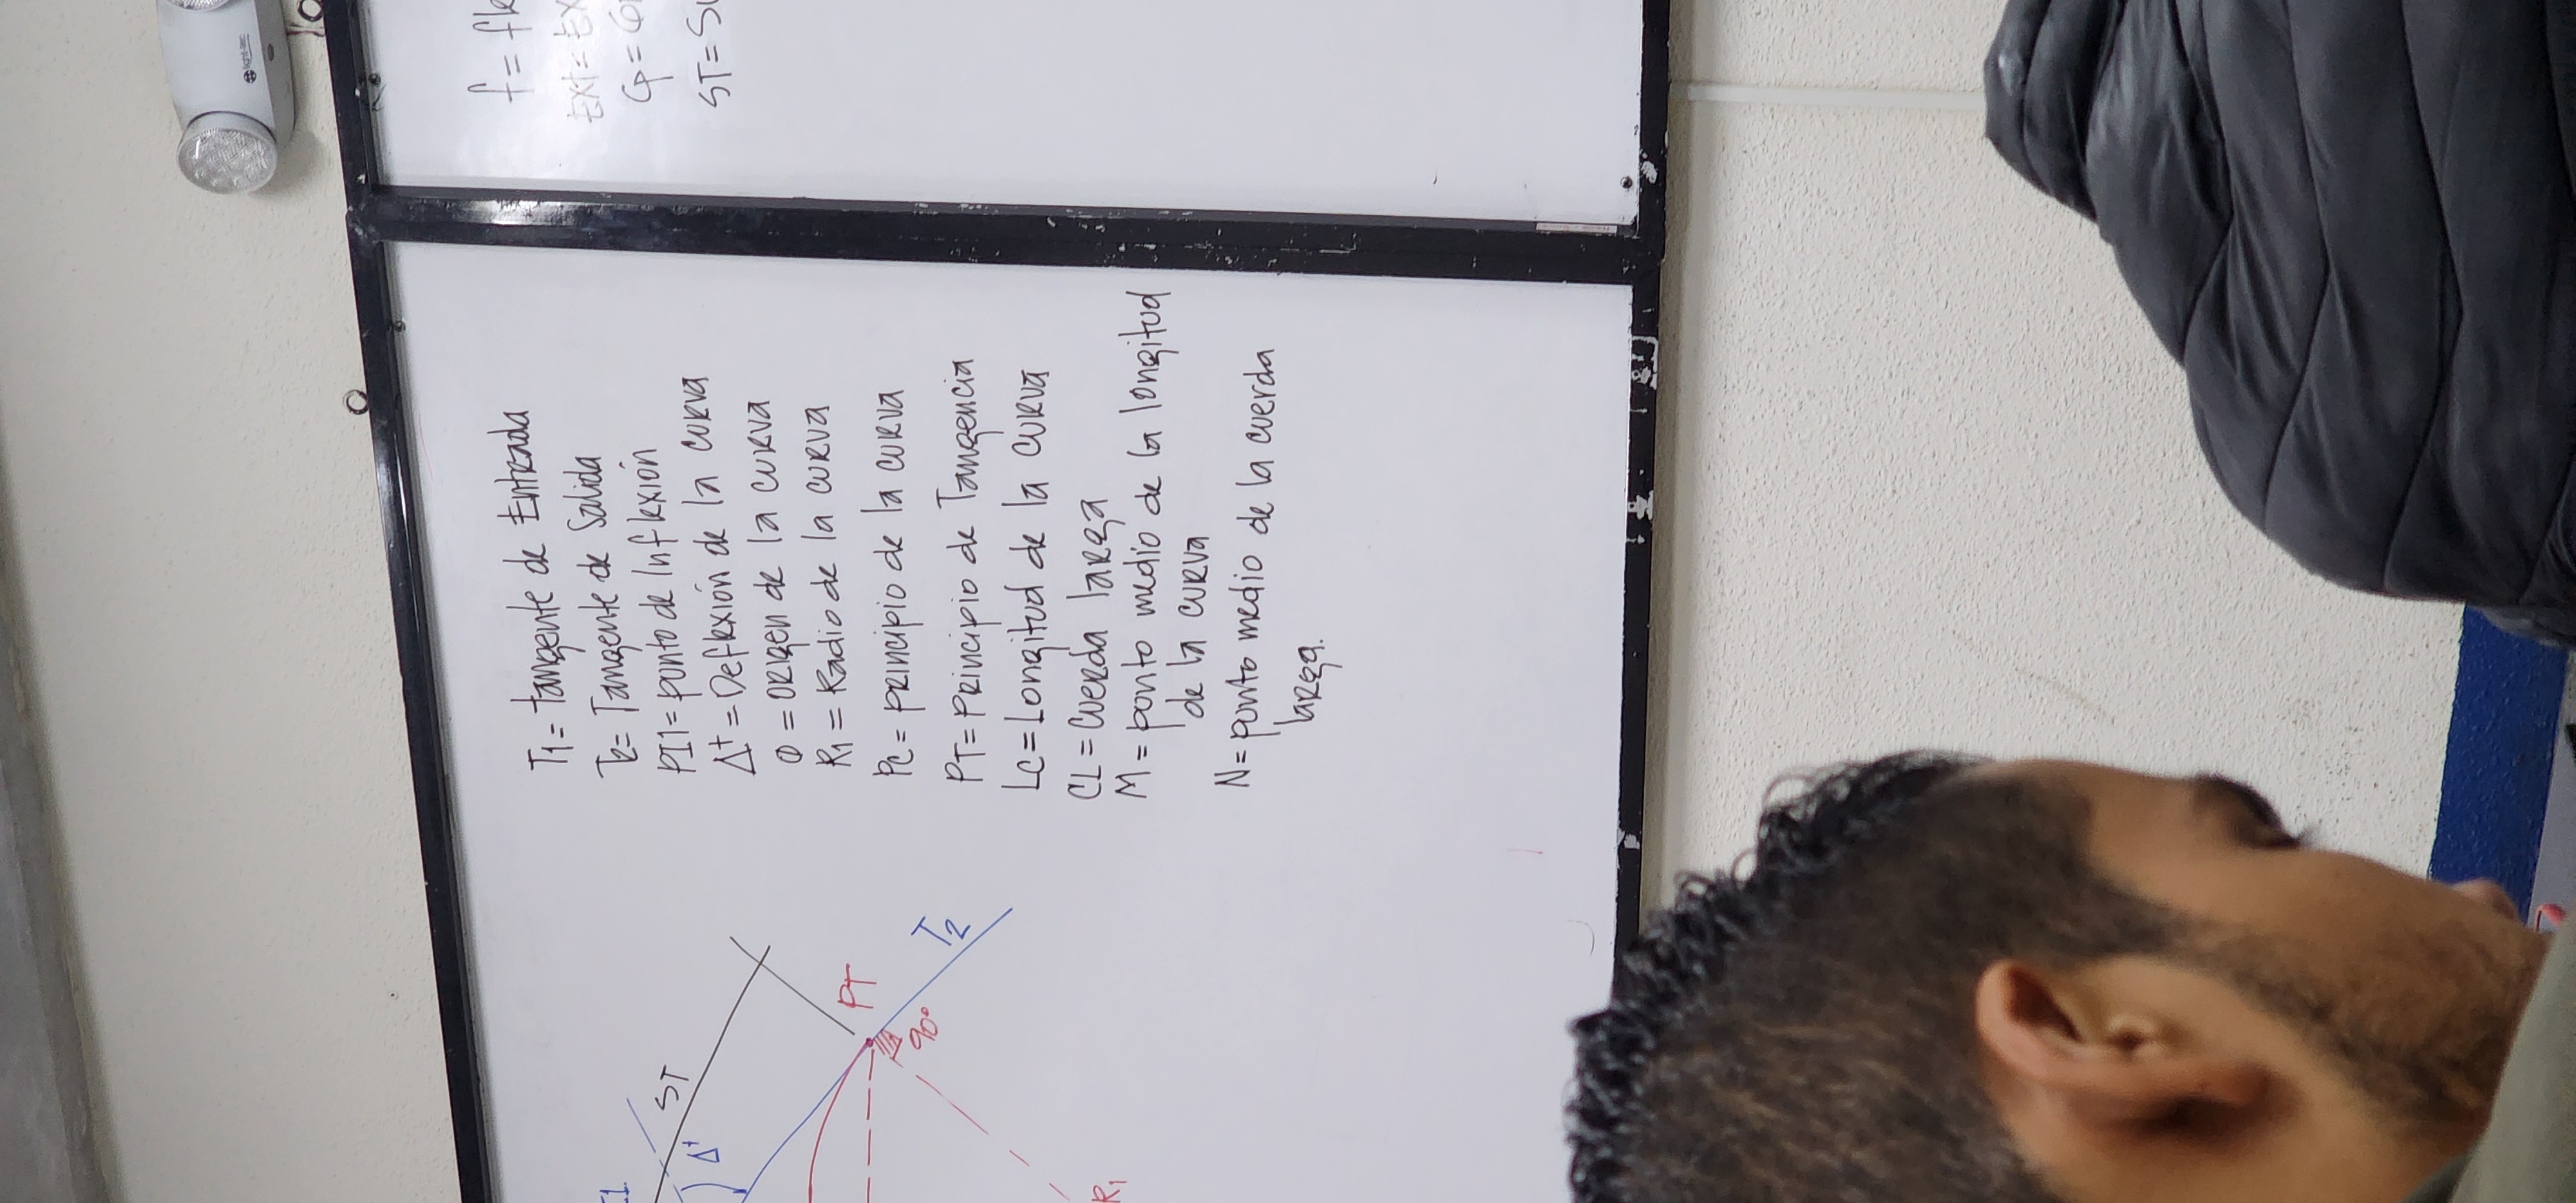 ST
Δ+
PT
90°
T2
R1
T1= tangente de Entrada
T2= Tangente de Salida
PI1= punto de Inflexión
Δ+ = Deflexión de la curva
O = origen de la curva
R1 = Radio de la curva
PC = principio de la curva
PT= Principio de Tangencia
LC= Longitud de la curva
CL = cuerda larga
M = punto medio de la longitud
de la curva
N= punto medio de la cuerda
larga.
f=
Ext=
G =
ST=
light-tec